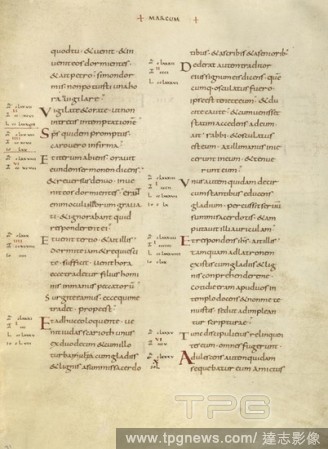 MARCUM
quodtu · & uent · & in
uenit eos dormientes ·
& ait petro · simon dor
mis · non potuisti una ho
ra uigilare ·
Vigilate & orate · ut non
intretis in temptatione ·
Sps quidem promptus ·
caro uero infirma ·
Et iterum abiens · oraut
eundem sermonem dicens ·
& reuersus denuo · inue
nit eos dormientes ·
oculi
& ignorabant quid
responderent ei ·
Et uenit tertio · & ait illis
dormite iam & requiesci
te · sufficit · uenit hora
ecce tradetur filius homi
nis in manus peccatorū
Surgite eamus · ecce qui me
tradet · prope est
Et adhuc eo loquente · ue
nit iudas scarioth unus
ex duodecim & cum illo
turba cum gladiis
& lignis a summis sacerdo
tibus · & a scribis & a seniorib;
Dederat autem traditor
eius signum eis dicens · quē
cumq; osculatus fuero ·
ipse est tenete eum · & du
cite caute · & cum uenisset
statim accedens ad eum
ait rabbi · & osculatus
est eum · at illi manus inie
cerunt in eum · & tenue
runt eum ·
Unus autem quidam de cir
cumstantibus educens
gladium · percussit seruū
summi sacerdotis · & am
putauit illi auriculam ·
Et respondens ihs · ait illis ·
tamquam ad latronem
existis cum gladiis & lig
nis comprehendere me ·
cotidie eram apud uos in
templo docens & non me te
nuistis · sed ut adimplean
tur scripturae ·
Tunc discipuli eius relinquen
tes eum · omnes fugerunt
Adulescens autem quidam
sequebatur eum amictus
TPG
www.tpgnews.com/ 達志影像